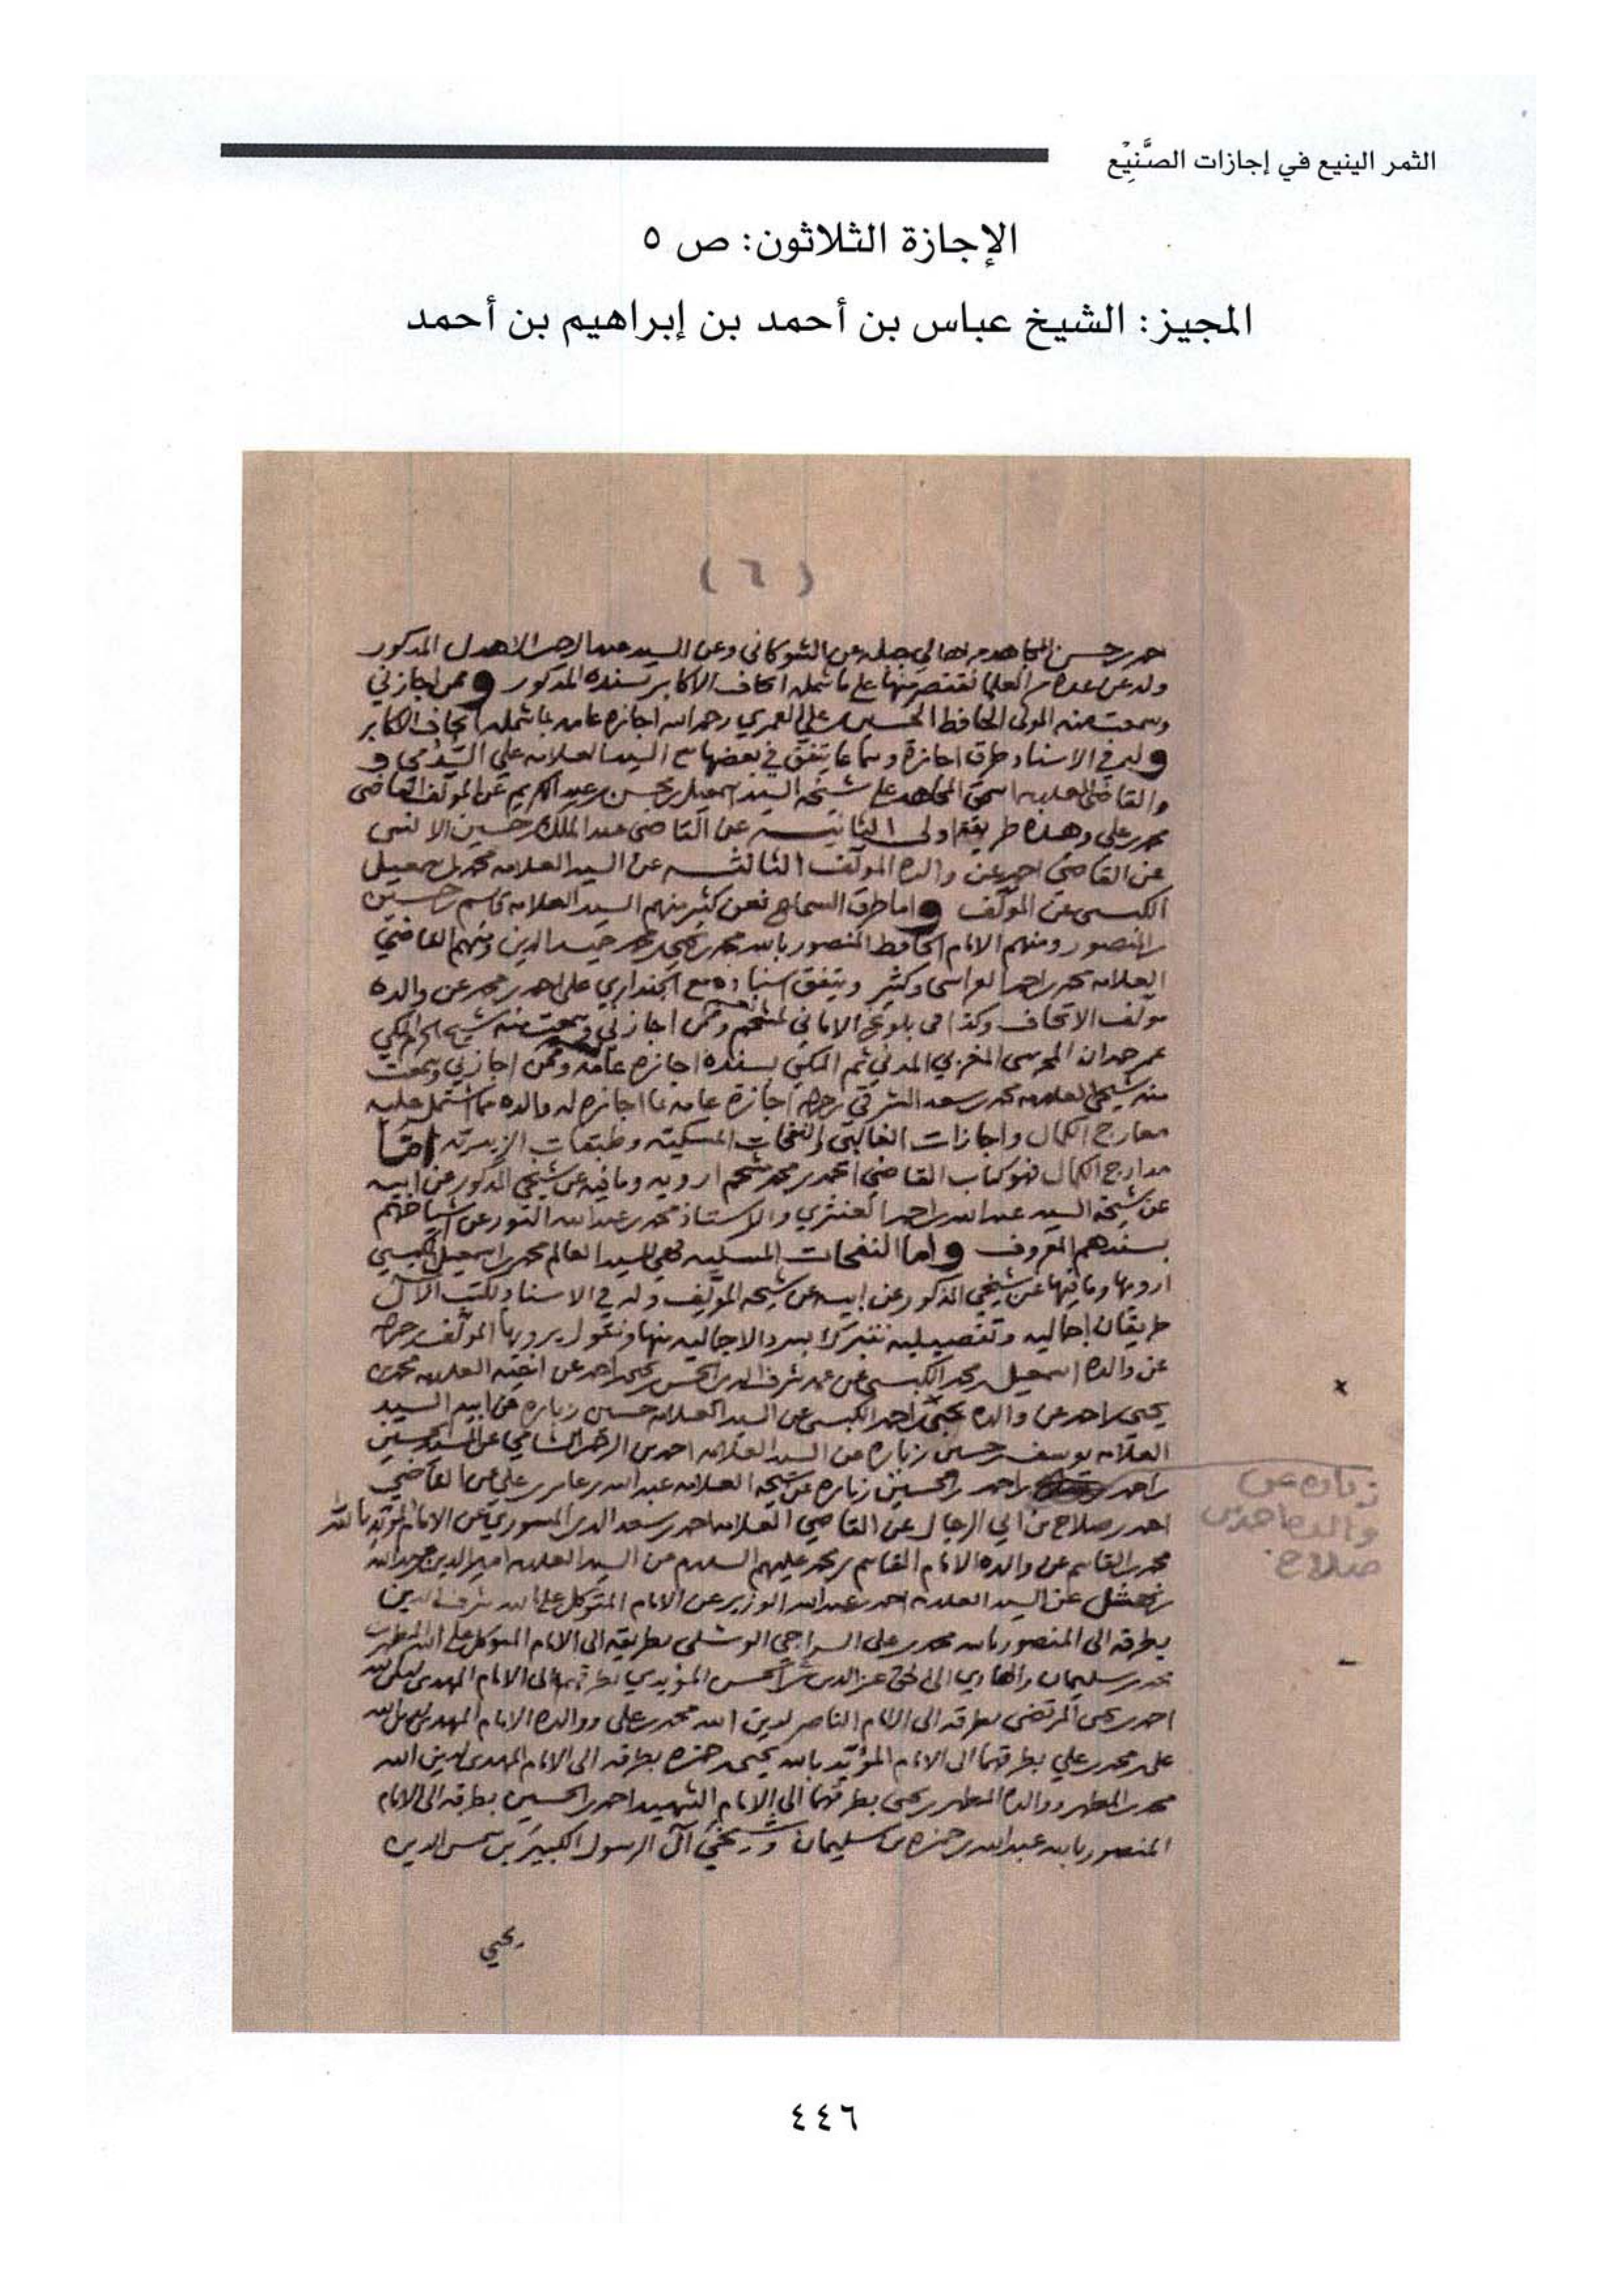 الثمر الينيع في إجازات الصَّنِيْع
الإجازة الثلاثون: ص ٥
المجيز: الشيخ عباس بن أحمد بن إبراهيم بن أحمد
(٦)
حسن المجاهد عن الشوكاني وعن السيد الاهدل المذكور
وله عن عدة نقتصر منها على ما شمله اتحاف الاكابر بسنده المذكور وممن اجازني
وسمعت منه المولى الحافظ الحسين علي العمري رحمه الله اجازه عامه بما شمله اتحاف الاكابر
وله في الاسناد طرق اجازة وسماعا يتفق في بعضها مع السيد العلامه علي و
والقاضي العلامه اسحق المجاهد على شيخه السيد اسمعيل محسن عبد الكريم عن المؤلف القاضي
محمد علي وهذه طريقة اولى الثانيه عن القاضي عبد الملك حسين الانسي
عن القاضي احمد عن والده المؤلف الثالثه عن السيد العلامه محمد اسمعيل
الكبسي عن المؤلف واما طرق السماع فعن كثير منهم السيد العلامه قاسم حسين
المنصور ومنهم الامام الحافظ المنصور بالله محمد يحيى محمد حميد الدين ومنهم القاضي
العلامه محمد احمد العراسي وكثير ويتفق اسناده مع الجنداري على احمد محمد عن والده
مؤلف الاتحاف وكذا في بلوغ الاماني وممن اجازني وسمعت منه شيخ الحرم المكي
عمر حمدان المحرسي المغربي المدني ثم المكي بسنده اجازه عامه وممن اجازني وسمعت
منه شيخي العلامه محمد سعد الشرقي اجازة عامه بما اجازه له والده مما اشتمل عليه
معارج الكمال واجازات والنفحات المسكيه وطبقات الزيديه اما
مدارج الكمال فهو كتاب القاضي محمد مشحم ارويه وما فيه عن شيخي المذكور عن ابيه
عن شيخه السيد عبد الله احمد العنثري والاستاذ محمد عبد الله عن اشياخهم
بسندهم المعروف واما النفحات المسكيه فهي للسيد العالم محمد اسمعيل الكبسي
ارويها وما فيها عن شيخي المذكور عن ابيه عن شيخه المؤلف وله في الاسناد لكتب الآل
طريقان اجماليه وتفصيليه نتبرك بسرد الاجماليه منها ونقول يرويها المؤلف
عن والده اسمعيل محمد الكبسي عن شرف الدين عن اخيه العلامه محمد
يحيى احمد عن والده يحيى احمد الكبسي عن السيد العلامه حسين زباره عن ابيه السيد
العلامه يوسف حسين زباره عن السيد العلامه احمد الشامي عن السيد الحسين
احمد احمد الحسين زباره عن شيخه العلامه عبد الله عامر علي عن القاضي
احمد صلاح بن ابي الرجال عن القاضي العلامه احمد سعد الدين المسوري عن الامام المؤيد بالله
محمد القاسم عن والده الامام القاسم محمد عليهم السلام عن السيد العلامه امير الدين عبد الله
نهشل عن السيد العلامه احمد عبد الله الوزير عن الامام المتوكل على الله شرف الدين
بطرقه الى المنصور بالله محمد علي السراجي الوشلي بطريقه الى الامام المتوكل على الله المطهر
محمد سليمان والهادي الى الحق عز الدين المؤيدي بطرقهما الى الامام المهدي لدين الله
احمد يحيى المرتضى بطرقه الى الامام الناصر لدين الله محمد علي ووالده الامام المهدي لدين الله
علي محمد علي بطرقهما الى الامام المؤيد بالله يحيى حمزه بطرقه الى الامام المهدي لدين الله
محمد المطهر ووالده المطهر يحيى بطرقهما الى الامام الشهيد احمد الحسين بطرقه الى الامام
المنصور بالله عبد الله حمزه بن سليمان وشيخي آل الرسول الكبيرين شمس الدين
يحيى
زباره عن
والده احمد
صلاح
٤٤٦